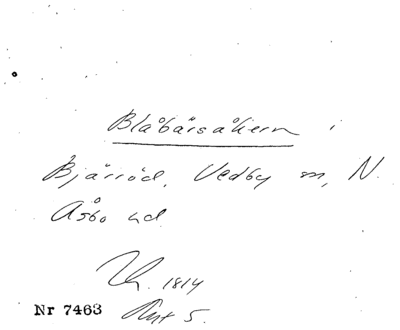 Blåbärsåkern i
Bjärröd, Vedby sn, N.
Åsbo hd
1814
Nr 7463
5.